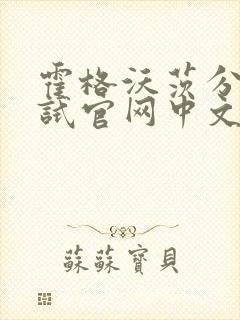 霍格沃茨分
試官网中文
蘇蘇寶貝